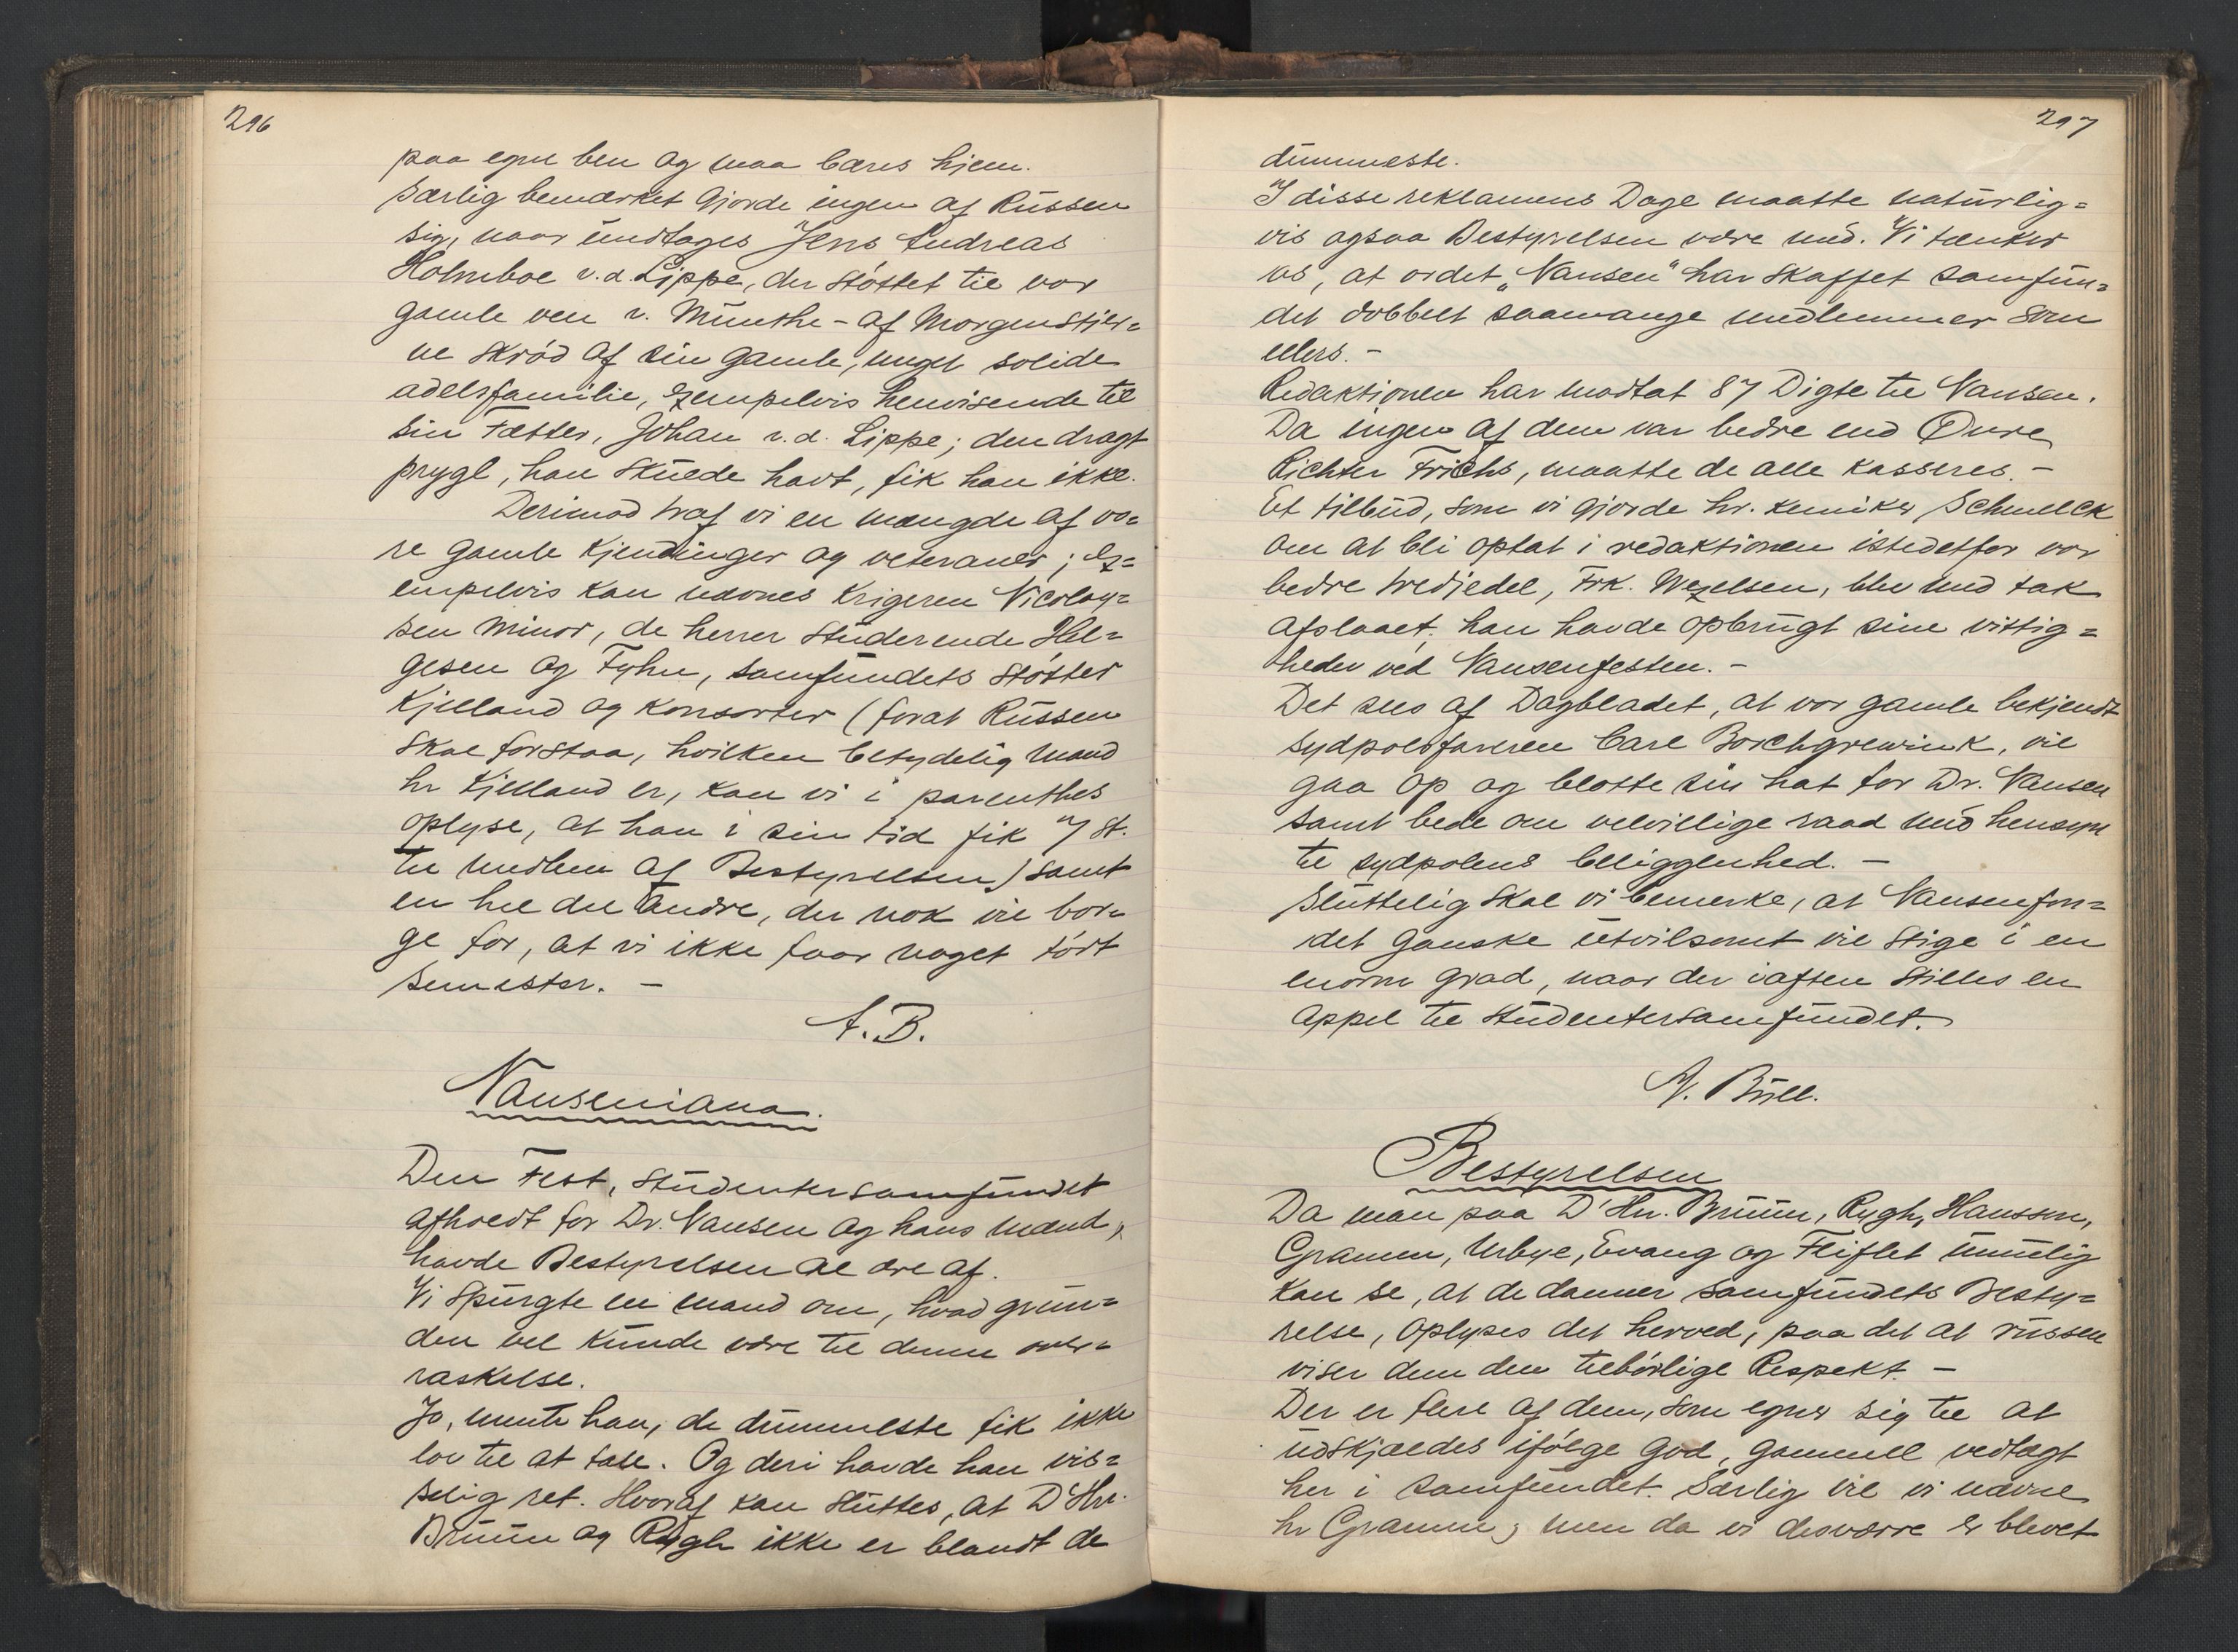 296
paa egne ben og maa bæres hjem.
Særlig bemærket gjorde ingen af Russen
sig, naar undtages Jens Andreas
Holmboe v. d. Lippe, der støttet til vor
gamle ven v. Munthe - af Morgenstier=
ne skrød af sin gamle, meget solide
adelsfamilie, exempelvis henvisende til
sin Fætter, Johan v. d. Lippe; den dragt
prygl, han skulde havt, fik han ikke.
Derimod traf vi en mængde af vo=
re gamle kjendinger og veteraner; ex=
empelvis kan nævnes krigeren Nicolay=
sen minor, de herrer studerende Hel=
gesen og Fyhn, samfundets støtter
Kjelland og konsorter (forat Russen
skal forstaa, hvilken betydelig mand
hr Kjelland er, kan vi i parenthes
oplyse, at han i sin tid fik 1 st.
til medlem af Bestyrelsen) samt
en hel del andre, der nok vil bor=
ge for, at vi ikke faar noget tørt
semester. -
A. B.
Nanseniana.
Den Fest, Studentersamfundet
afholdt for Dr. Nansen og hans mænd,
havde Bestyrelsen al ære af.
Vi spurgte en mand om, hvad grun=
den vel kunde være til denne over=
raskelse.
Jo, mente han, de dummeste fik ikke
lov til at tale. Og deri havde han vis=
selig ret. Hvoraf kan sluttes, at D'Hr.
Bruun og Rygh ikke er blandt de
297
dummeste.
I disse reklamens Dage maatte naturlig=
vis ogsaa Bestyrelsen være med. Vi tænker
os, at ordet „Nansen" har skaffet samfun=
det dobbelt saamange medlemmer som
ellers. -
Redaktionen har modtat 87 Digte til Nansen.
Da ingen af dem var bedre end Ovre
Richter Frichs, maatte de alle kasseres. -
Et tilbud, som vi gjorde hr. kemiker Schmelck
om at bli optat i redaktionen istedetfor vor
bedre tredjedel, Frk. Wexelsen, blev med tak
afslaaet. han havde opbrugt sine vittig=
heder ved Nansenfesten. -
Det sees af Dagbladet, at vor gamle bekjendt
sydpolsfareren Carl Borchgrevink, vil
gaa op og blotte sin hat for Dr. Nansen
samt bede om velvillige raad med hensyn
til sydpolens beliggenhed. -
Sluttelig skal vi bemerke, at Nansenfon=
det ganske utvilsomt vil stige i en
enorm grad, naar der iaften stilles en
appel til studentersamfundet.
A. Bull.
Bestyrelsen
Da man paa D'Hrr. Bruun, Rygh, Hanssen,
Gramm, Urbye, Evang og Fliflet umulig
kan se, at de danner samfundets Besty=
relse, oplyses det herved, paa det at russen
viser dem den tilbørlige Respekt. -
Der er flere af dem, som egner sig til at
udskjældes ifølge god, gammel vedtægt
her i samfundet. Særlig vil vi nævne
hr Gramm; men da vi desværre er blevet